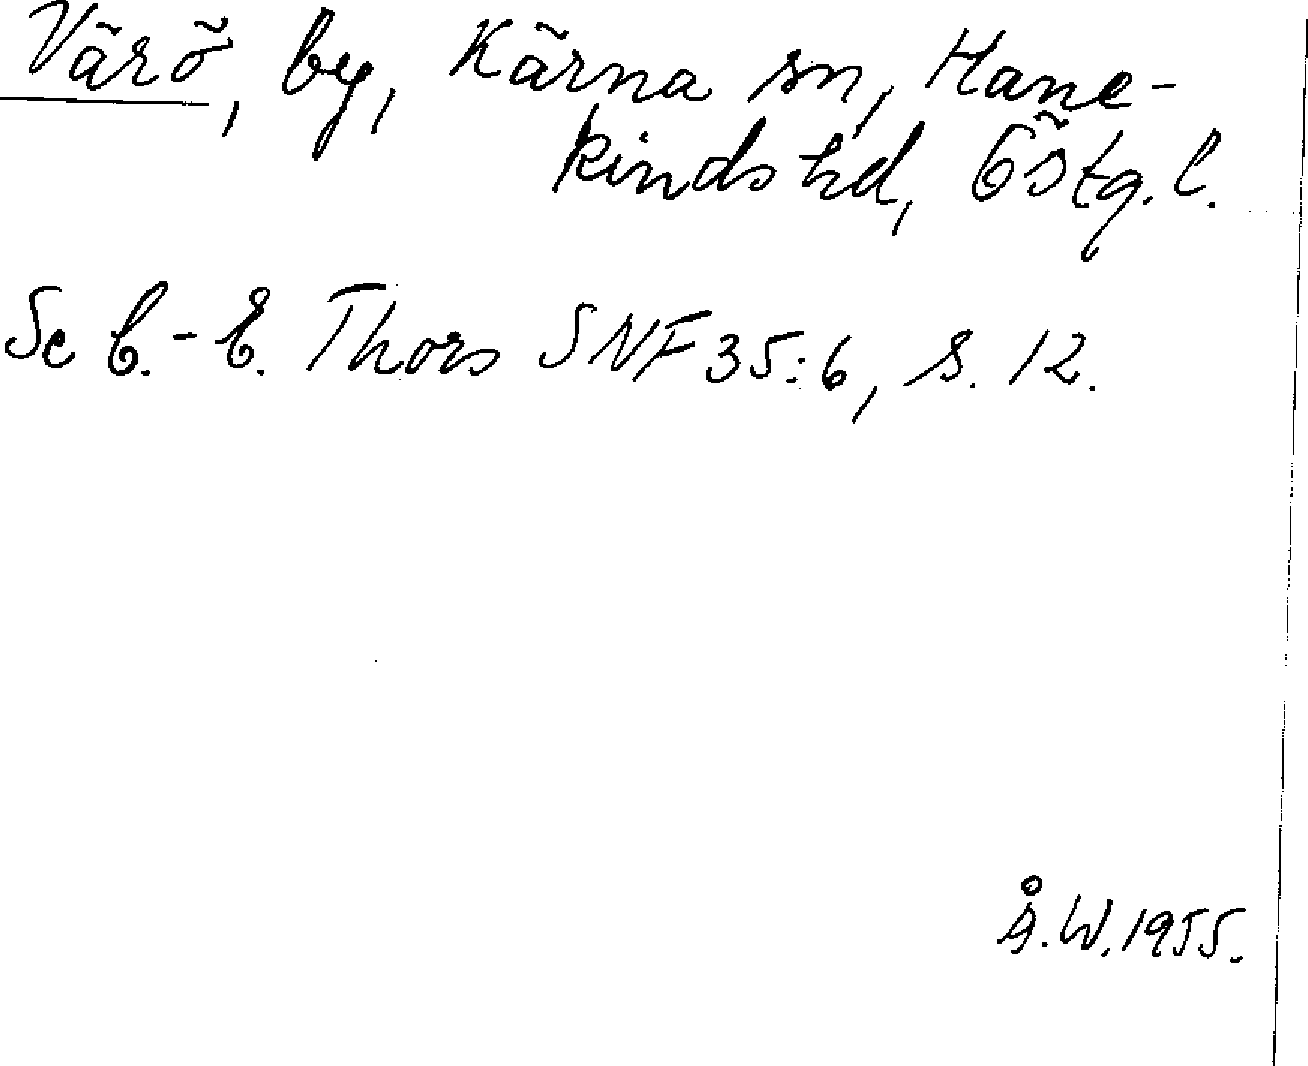 Värö, by, Kärna sn, Hane-
kinds hd, Östg. l.
Se C.-E. Thors SNF 35:6, s. 12.
Å.W. 1955.